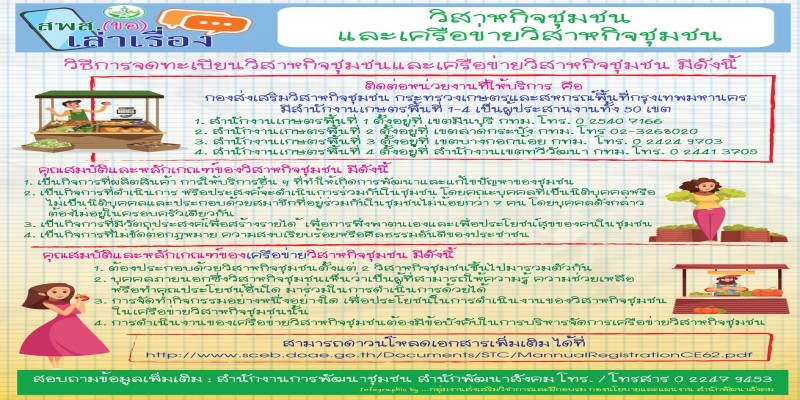 สพส.(ขอ)
เล่าเรื่อง
วิสาหกิจชุมชน
และเครือข่ายวิสาหกิจชุมชน
วิธีการจดทะเบียนวิสาหกิจชุมชนและเครือข่ายวิสาหกิจชุมชน มีดังนี้
ติดต่อหน่วยงานที่ให้บริการ คือ
กองส่งเสริมวิสาหกิจชุมชน กระทรวงเกษตรและสหกรณ์พื้นที่กรุงเทพมหานคร
มีสำนักงานเกษตรพื้นที่ 1-4 เป็นผู้ประสานงานทั้ง 50 เขต
1. สำนักงานเกษตรพื้นที่ 1 ตั้งอยู่ที่ เขตมีนบุรี กทม. โทร. 0 2540 7166
2. สำนักงานเกษตรพื้นที่ 2 ตั้งอยู่ที่ เขตลาดกระบัง กทม. โทร 02-3268020
3. สำนักงานเกษตรพื้นที่ 3 ตั้งอยู่ที่ เขตบางกอกน้อย กทม. โทร. 0 2424 9703
4. สำนักงานเกษตรพื้นที่ 4 ตั้งอยู่ที่ สำนักงานเขตทวีวัฒนา กทม. โทร. 0 2441 3705
คุณสมบัติและหลักเกณฑ์ของวิสาหกิจชุมชน มีดังนี้
1. เป็นกิจการที่ผลิตสินค้า การให้บริการอื่น ๆ ที่ทำให้เกิดการพัฒนาและแก้ไขปัญหาของชุมชน
2. เป็นกิจการที่ดำเนินการ หรือประสงค์จะดำเนินการร่วมกันในชุมชน โดยคณะบุคคลที่เป็นนิติบุคคลหรือ
ไม่เป็นนิติบุคคลและประกอบด้วยสมาชิกที่อยู่ร่วมกันในชุมชนไม่น้อยกว่า 7 คน โดยบุคคลดังกล่าว
ต้องไม่อยู่ในครอบครัวเดียวกัน
3. เป็นกิจการที่มีวัตถุประสงค์เพื่อสร้างรายได้ เพื่อการพึ่งพาตนเองและเพื่อประโยชน์สุขของคนในชุมชน
4. เป็นกิจการที่ไม่ขัดต่อกฎหมาย ความสงบเรียบร้อยหรือศีลธรรมอันดีของประชาชน
คุณสมบัติและหลักเกณฑ์ของเครือข่ายวิสาหกิจชุมชน มีดังนี้
1. ต้องประกอบด้วยวิสาหกิจชุมชนตั้งแต่ 2 วิสาหกิจชุมชนขึ้นไปมารวมตัวกัน
2. บุคคลภายนอกซึ่งวิสาหกิจชุมชนเห็นว่าเป็นผู้ที่สามารถให้ความรู้ ความช่วยเหลือ
หรือทำคุณประโยชน์อื่นใด มาร่วมในการดำเนินการด้วยได้
3. การจัดทำกิจกรรมอย่างหนึ่งอย่างใด เพื่อประโยชน์ในการดำเนินงานของวิสาหกิจชุมชน
ในเครือข่ายวิสาหกิจชุมชนนั้น
4. การดำเนินงานของเครือข่ายวิสาหกิจชุมชนต้องมีข้อบังคับในการบริหารจัดการเครือข่ายวิสาหกิจชุมชน
สามารถดาวน์โหลดเอกสารเพิ่มเติมได้ที่
http://www.sceb.doae.go.th/Documents/STC/MannualRegistrationCE62.pdf
สอบถามข้อมูลเพิ่มเติม : สำนักงานการพัฒนาชุมชน สำนักพัฒนาสังคม โทร. /โทรสาร 0 2247 9453
Infographic by ...กลุ่มงานส่งเสริมวิชาการและฝึกอบรม กองนโยบายและแผนงาน สำนักพัฒนาสังคม